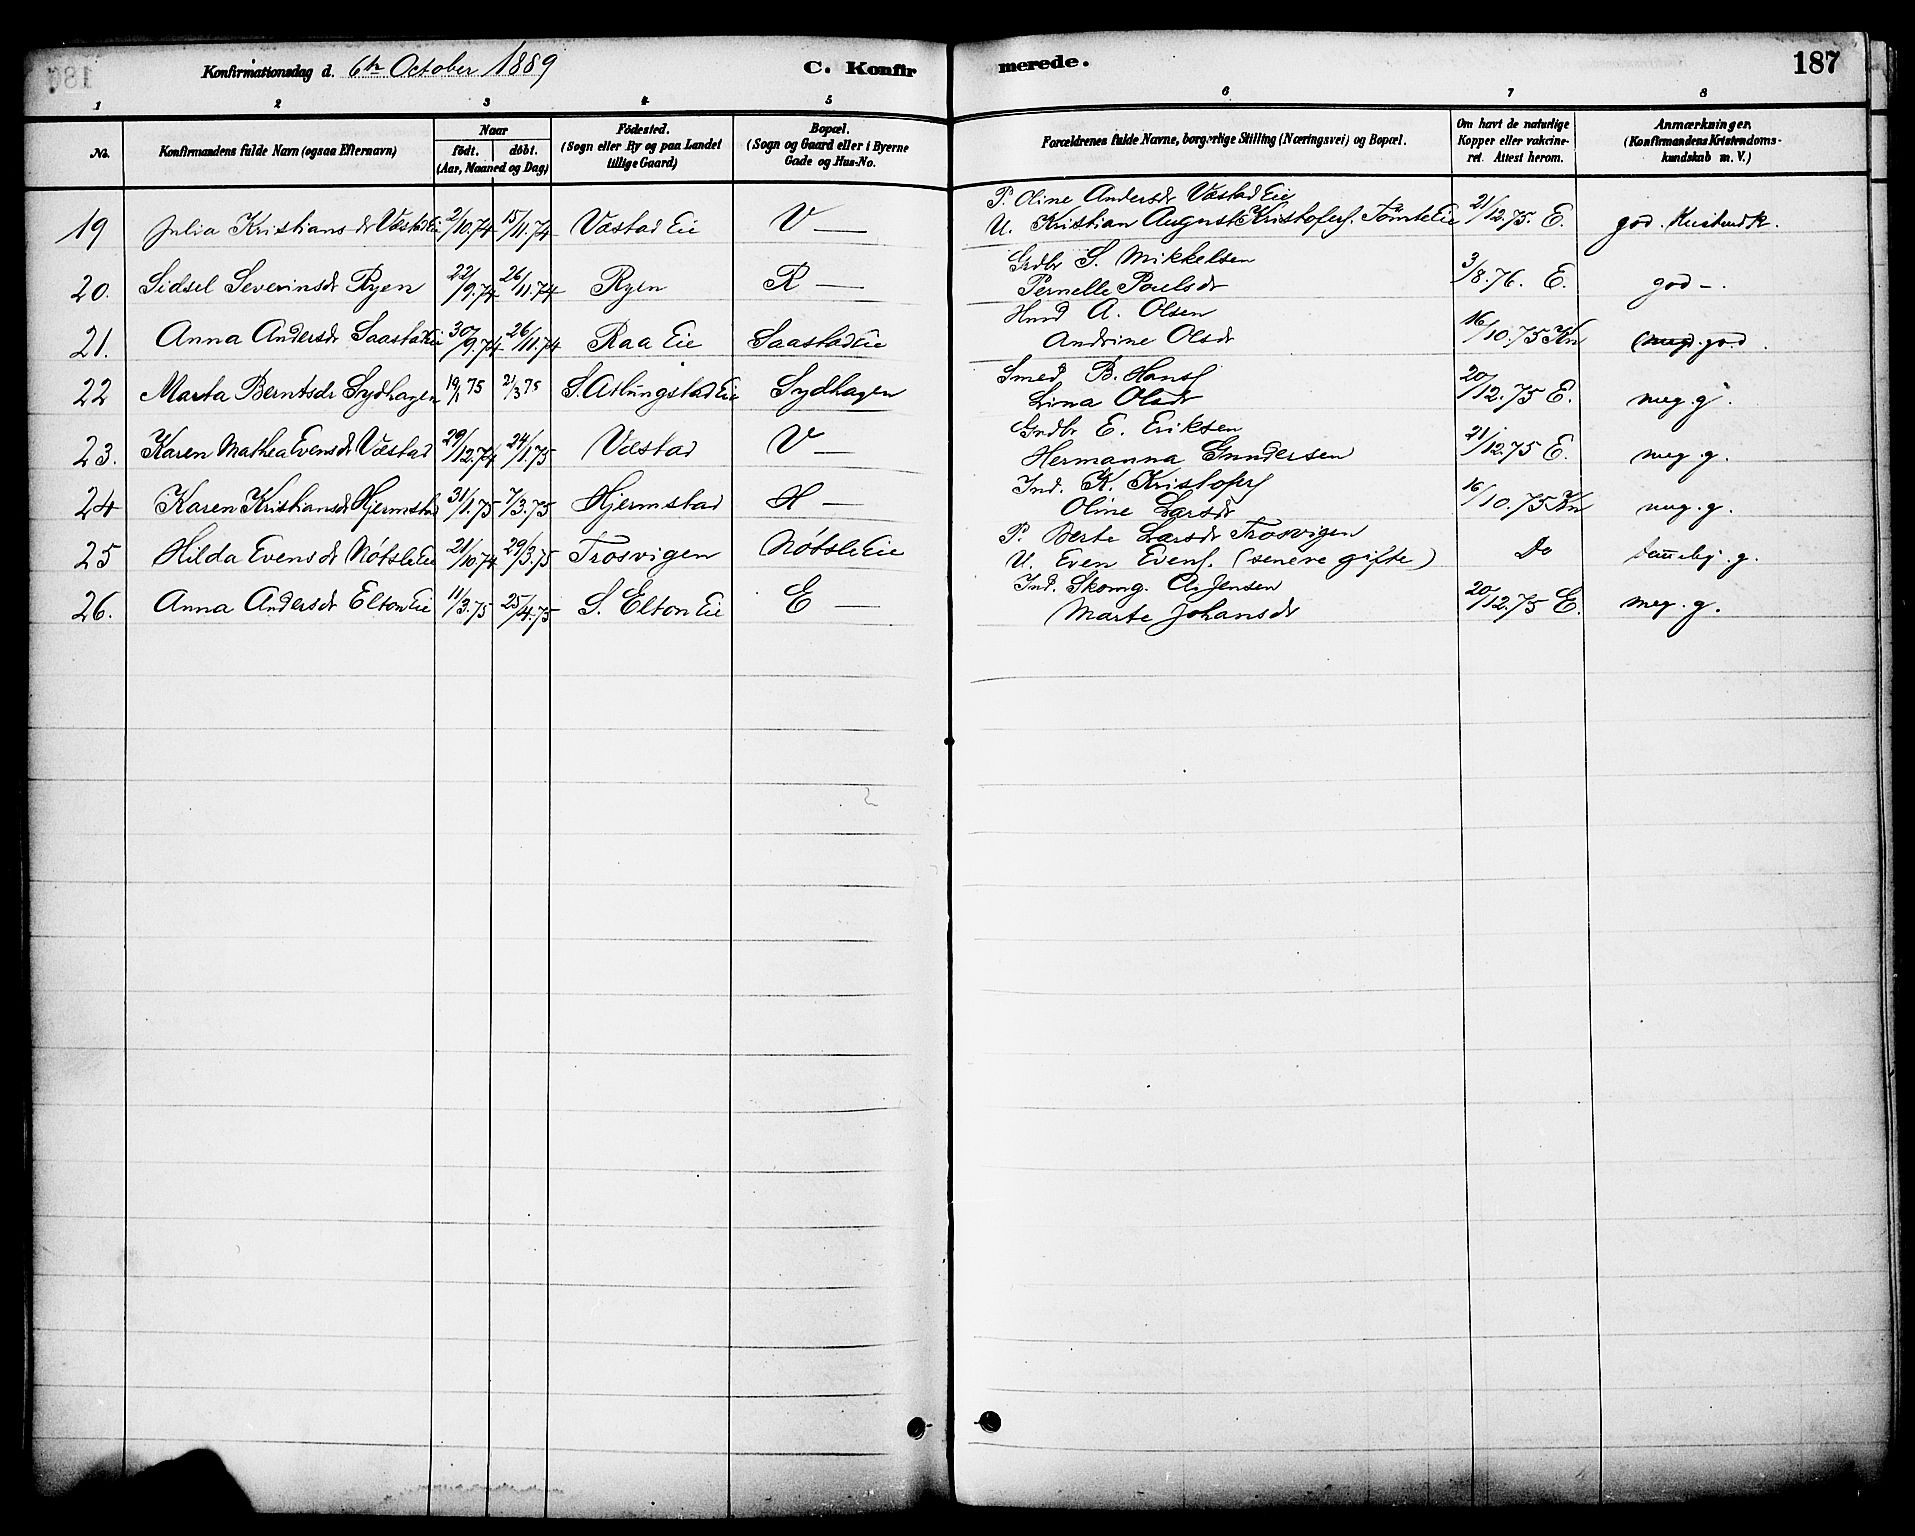 Konfirmationsdag d. 6te October 1889 C. Konfirmerede. 187
1 2 3 4 5 6 7 8
No. Konfirmandens fulde Navn (ogsaa Efternavn) Naar født. døbt. (Aar, Maaned og Dag) Fødested. (Sogn eller By og paa Landet tillige Gaard) Bopæl. (Sogn og Gaard eller i Byerne Gade og Hus-No. Forældrenes fulde Navne, borgerlige Stilling (Næringsvei) og Bopæl. Om havt de naturlige Kopper eller vakcineret. Attest herom. Anmærkninger. (Konfirmandens Kristendomskundskab m. V.)
P. Oline Andersdr Væstad Eie
19 Julia Kristiansdr Væstad Eie 2/10.74 15/11.74 Væstad Eie V — U. Kristian August Kristofers. Tømte Eie 21/12.75. E. god. Kristendk.
Grdbr S. Mikkelsen
20. Sidsel Severinsdr Ryen 22/9.74 26/11.74 Ryen R — Pernelle Poulsdr 3/8.76. E. god —.
Husd A. Olsen
21. Anna Andersdr Saastad Eie 30/9.74 26/11.74 Raa Eie Saastad Eie Andrine Olsdr 16/10.75 Kn (meg. god.
Smed B. Hans.
22 Marta Berntsdr Sydhagen 19/1 75 21/3 75 S. Atlungstad Eie Sydhagen Lina Olsdr 20/12.75 E. meg. g.
Grdbr E. Eriksen
23. Karen Mathea Evensdr Væstad 29/12.74 24/1.75 Væstad V — Hermanna Gundersen 21/12.75 E. meg. g.
Ind. K. Kristofers.
24 Karen Kristiansdr Hjermstad 31/1.75 7/3.75 Hjermstad H — Oline Larsdr 16/10.75 Kn meg. g.
P. Berte Larsdr Trosvigen
25 Hilda Evensdr Nøtsle Eie 21/10.74 29/3.75 Trosvigen Nøtsle Eie U. Even Evens. (senere gifte) Do temmelig. g.
Ind. Skomg. A. Jensen
26. Anna Andersdr Elton Eie 11/3.75 25/4.75 S. Elton Eie E — Marte Johansdr 20/12.75 E. meg. g.